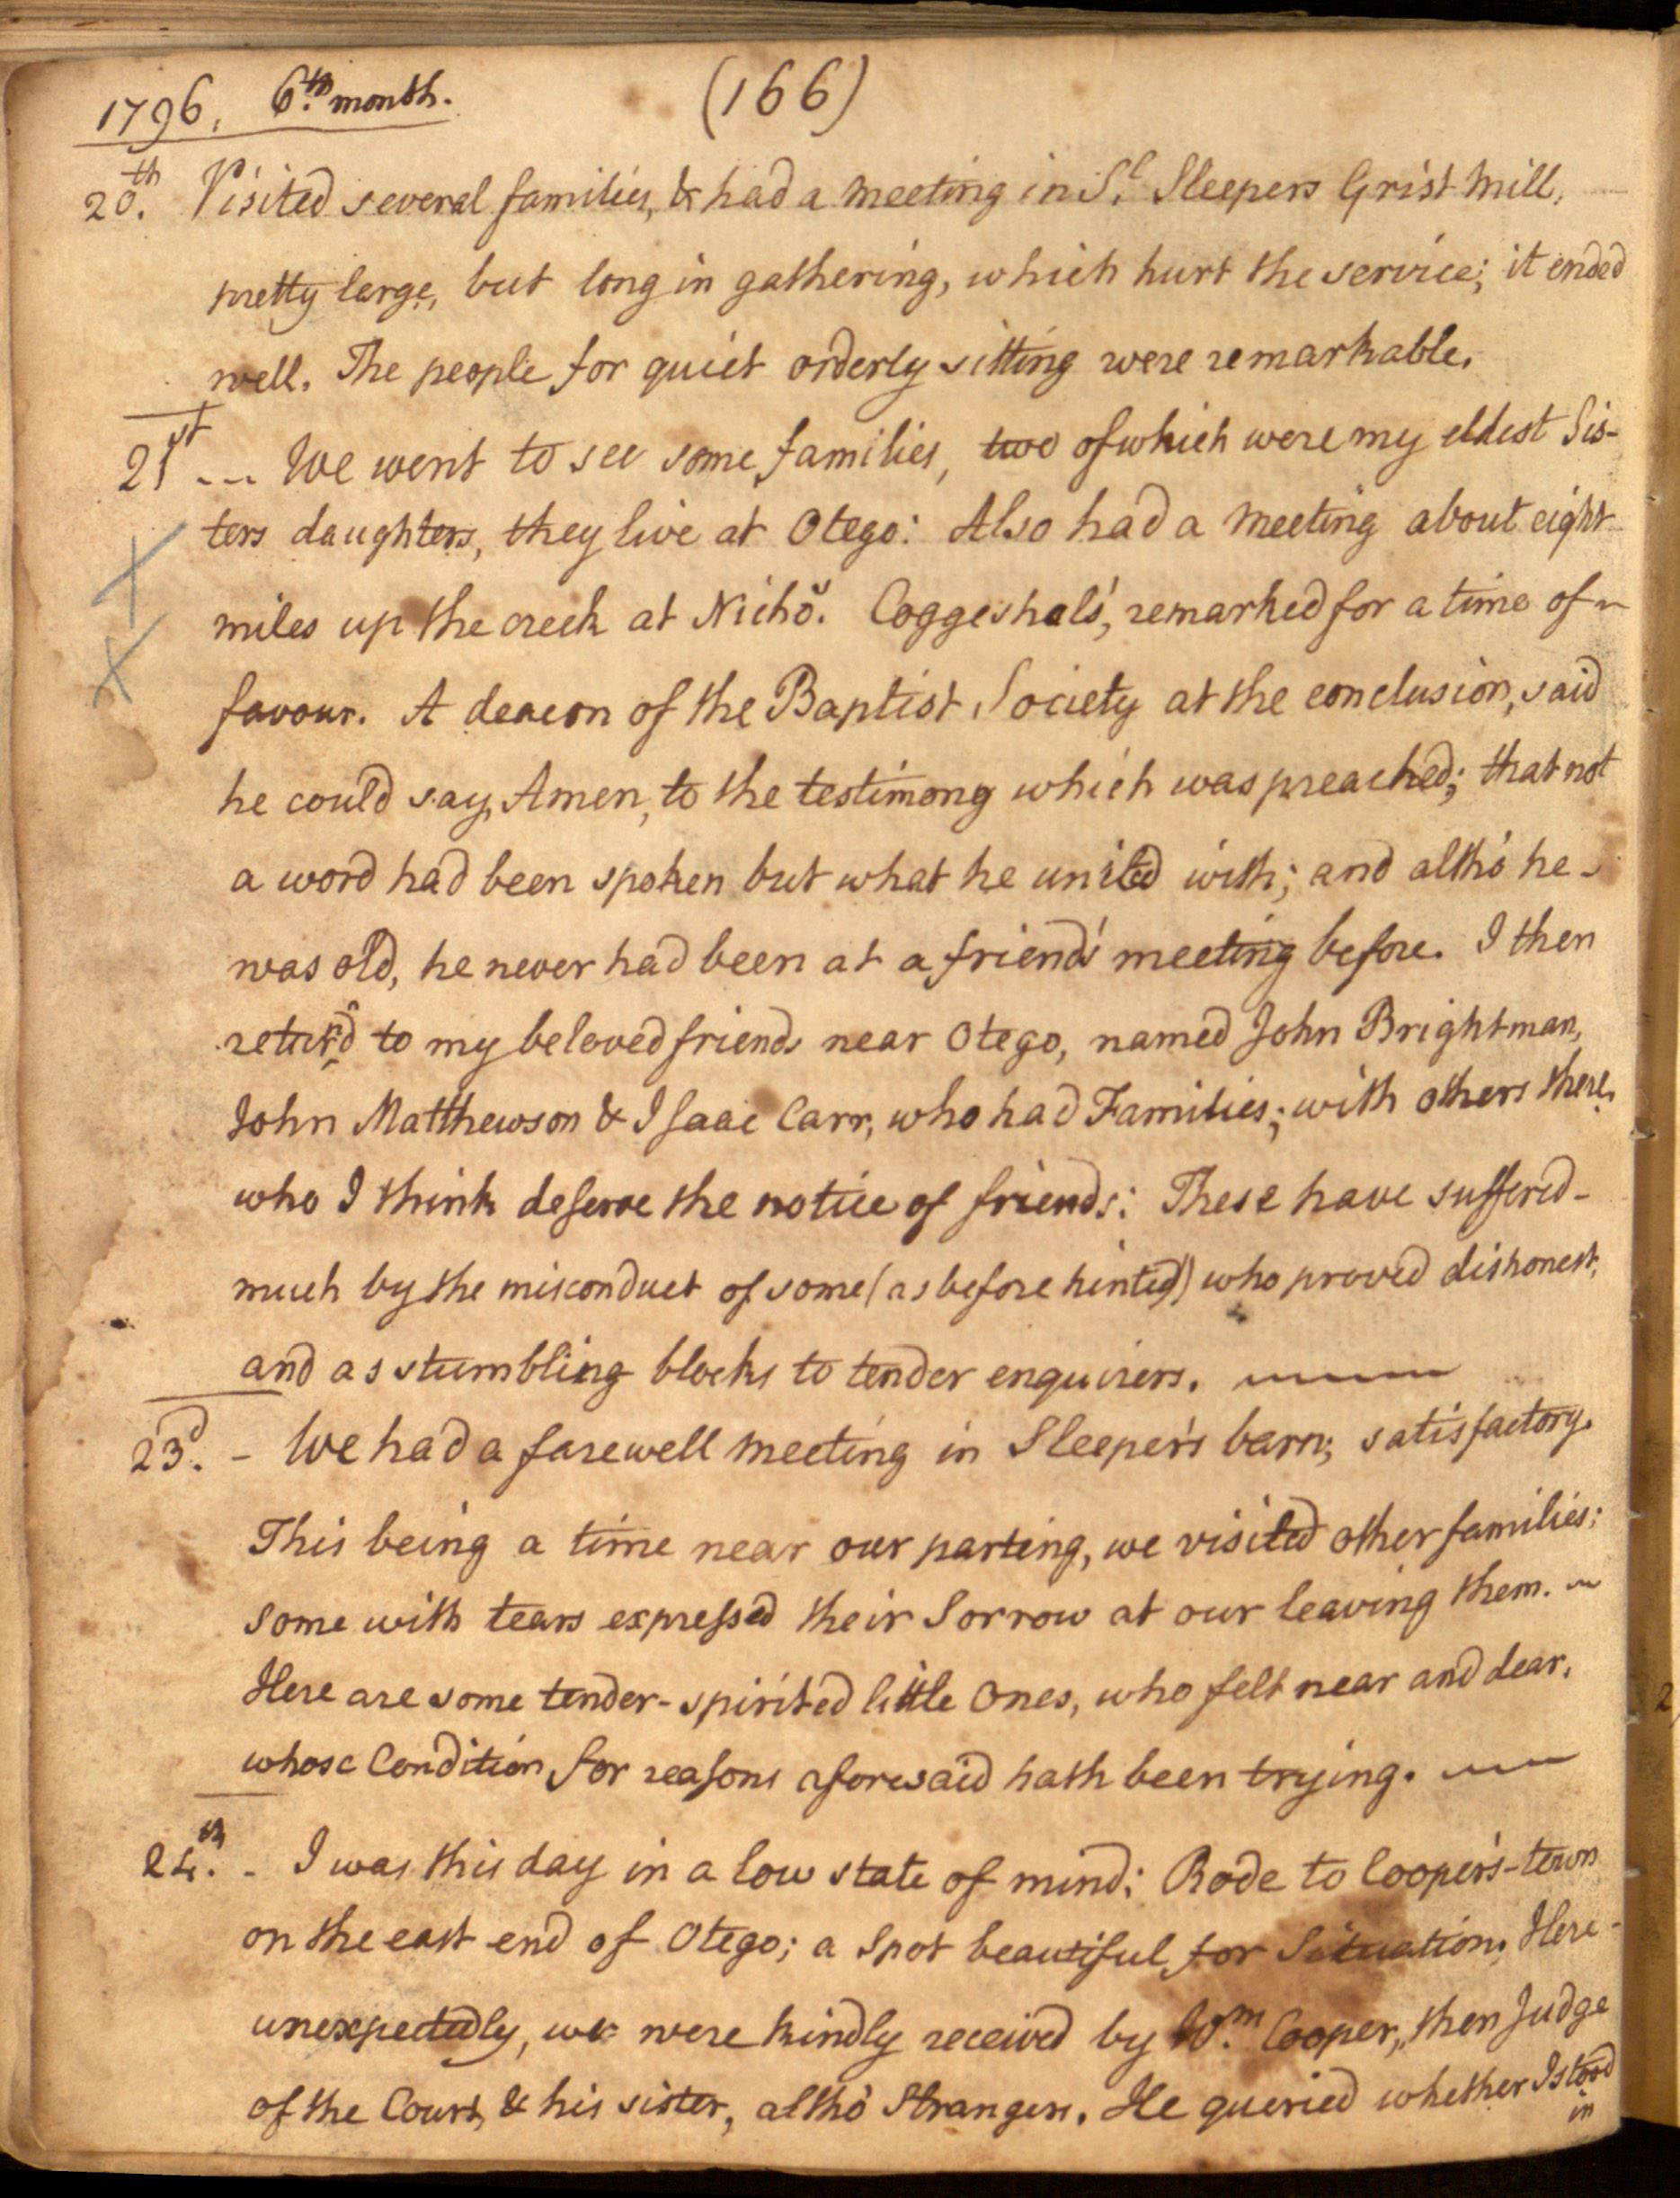 1796, 6.th month. (166)
20.th Visited several families, & had a meeting in S.l Sleepers Grist Mill,
pretty large, but long in gathering, which hurt the service; it ended
well. The people for quiet orderly sitting were remarkable.
21st -- We went to see some families, two of which were my eldest Sis-
ters daughters, they live at Otego: Also had a meeting about eight
miles up the creek at Nicho.s Coggeshals', remarked for a time of
favour. A deacon of the Baptist Society at the conclusion, said
he could say, Amen, to the testimony which was preached; that not
a word had been spoken but what he united with; and altho' he
was old, he never had been at a friends' meeting before. I then
return'd to my beloved friends near Otego, named John Brightman,
John Matthewson & Isaac Carr, who had Families; with others there,
who I think deserve the notice of friends: These have suffered
much by the misconduct of some (as before hinted) who proved dishonest,
and as stumbling blocks to tender enquirers.
23.d - We had a farewell meeting in Sleeper's barn; satisfactory.
This being a time near our parting, we visited other families;
some with tears expressed their Sorrow at our leaving them.
Here are some tender-spirited little Ones, who felt near and dear,
whose Condition for reasons aforesaid hath been trying.
24.th - I was this day in a low state of mind: Rode to Cooper's-town
on the east end of Otego; a Spot beautiful for Situation. Here
unexpectedly, we were kindly received by W.m Cooper, then Judge
of the Court, & his sister, altho' Strangers. He queried whether I stood
in